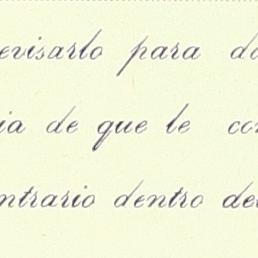 evisarlo para da
ia de que le con
ntrario dentro del